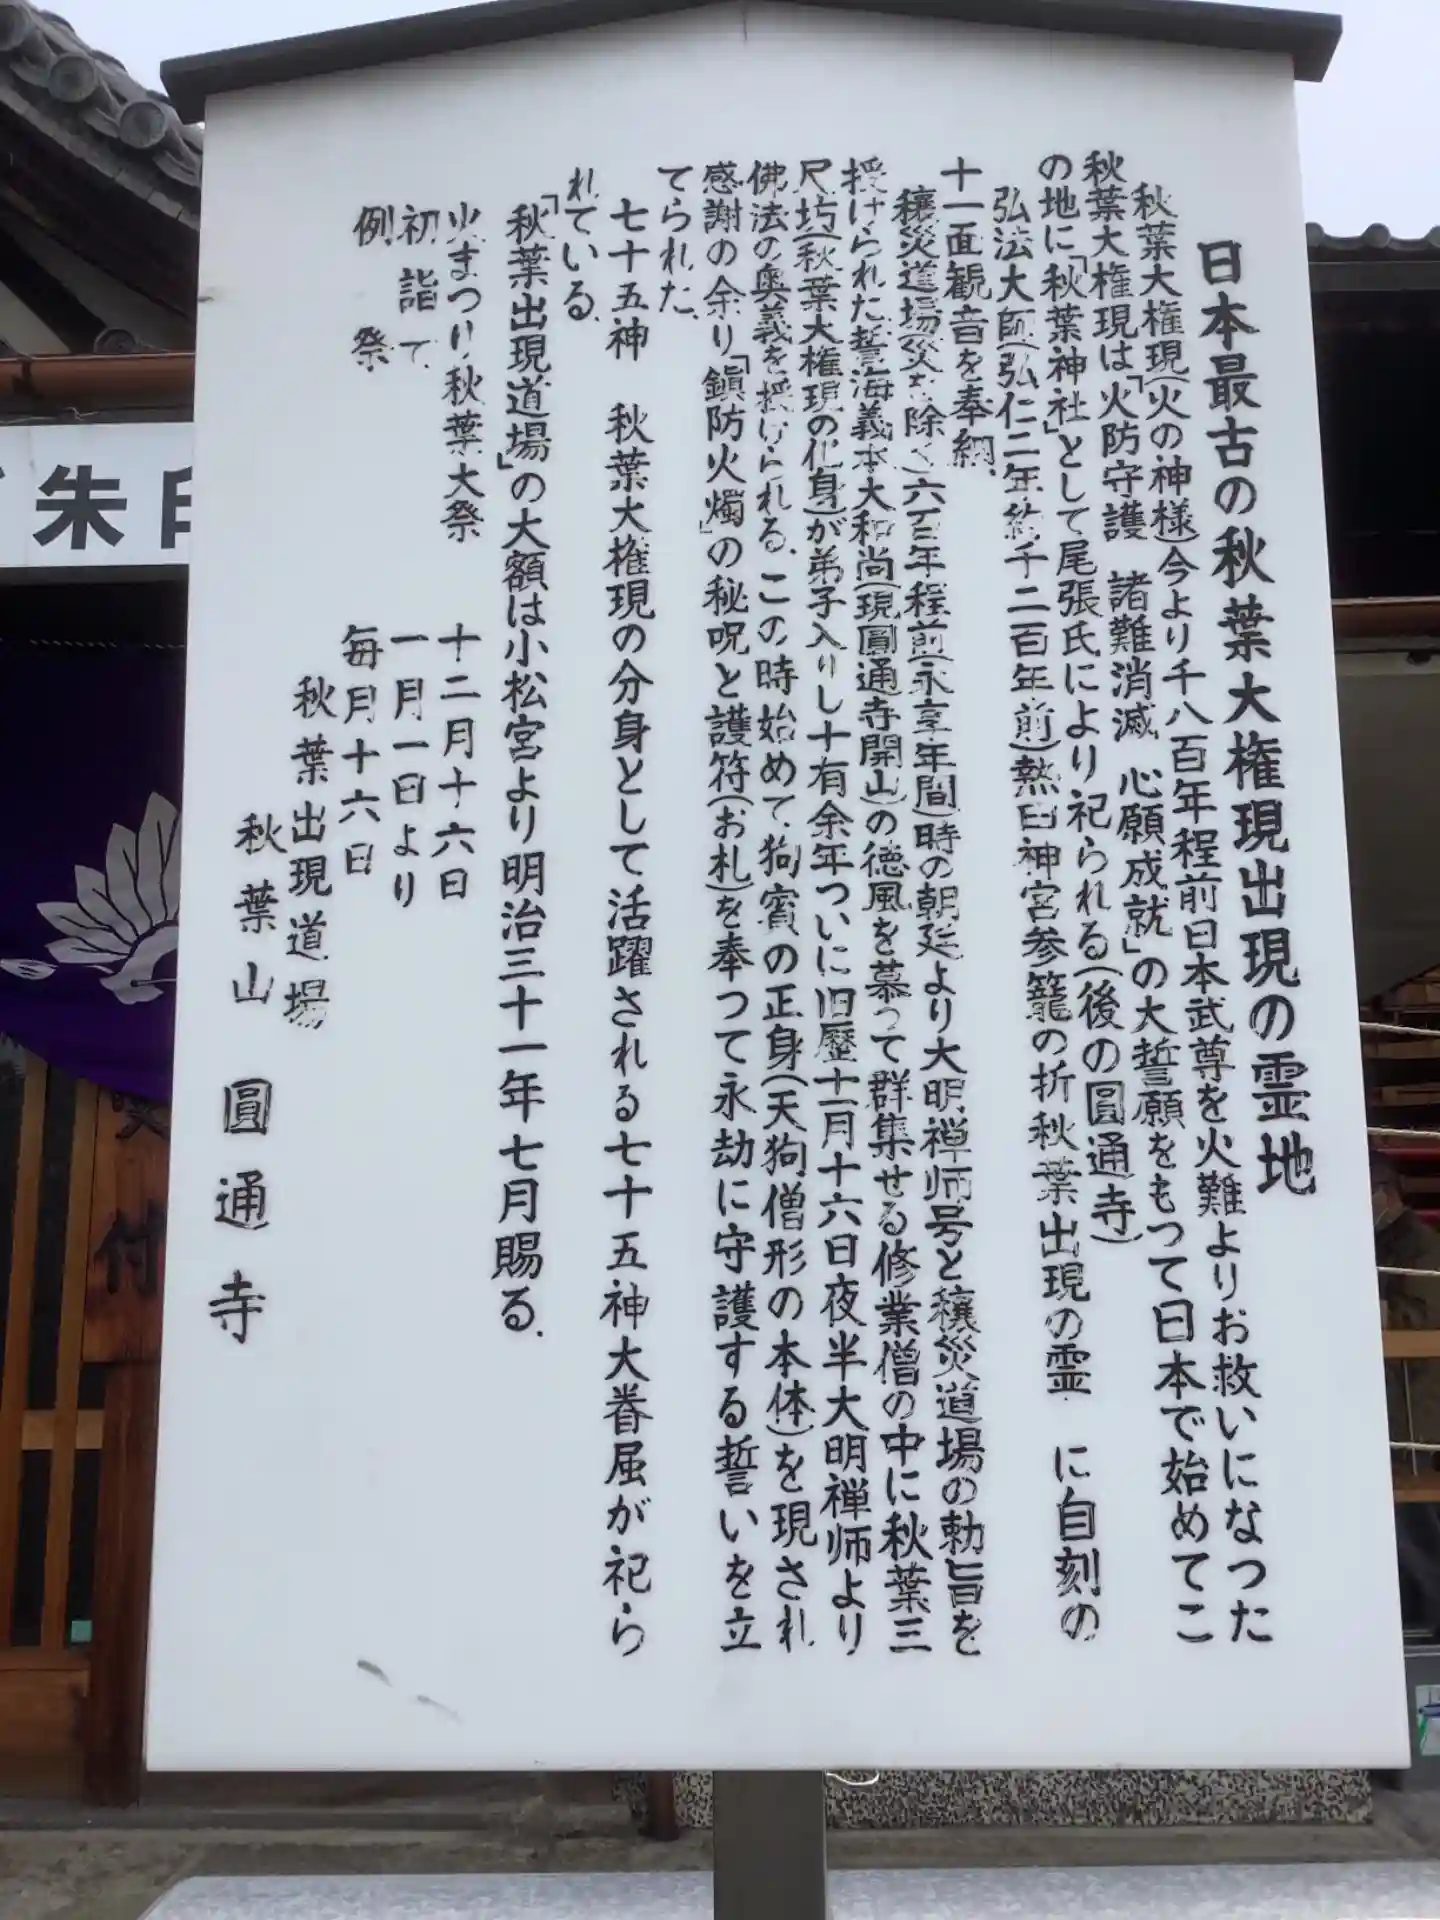 日本最古の秋葉大権現出現の霊地
秋葉大権現(火の神様)今より千八百年程前日本武尊を火難よりお救いになつた
秋葉大権現は「火防守護 諸難消滅 心願成就」の大誓願をもつて日本で始めてこ
の地に「秋葉神社」として尾張氏により祀られる(後の圓通寺)
弘法大師(弘仁二年約千二百年前)熱田神宮参籠の折秋葉出現の霊 に自刻の
十一面観音を奉納、
穣災道場(災を除く)六百年程前(永享年間)時の朝廷より大明禅师号と穣災道場の勅旨を
授けられた誓海義本大和尚(現圓通寺開山)の徳風を慕つて群集せる修業僧の中に秋葉三
尺坊(秋葉大権現の化身)が弟子入りし十有余年ついに旧歴十一月十六日夜半大明禅师より
佛法の奥義を授けられる、この時始めて、狗賓の正身(天狗僧形の本体)を現され
感謝の余り「鎭防火燭」の秘呪と護符(お札)を奉つて永劫に守護する誓いを立
てられた、
七十五神 秋葉大権現の分身として活躍される七十五神大眷属が祀ら
れている、
「秋葉出現道場」の大額は小松宮より明治三十一年七月賜る、
火まつり秋葉大祭 十二月十六日
初詣で 一月一日より
例祭 毎月十六日
秋葉出現道場
秋葉山 圓通寺
朱印